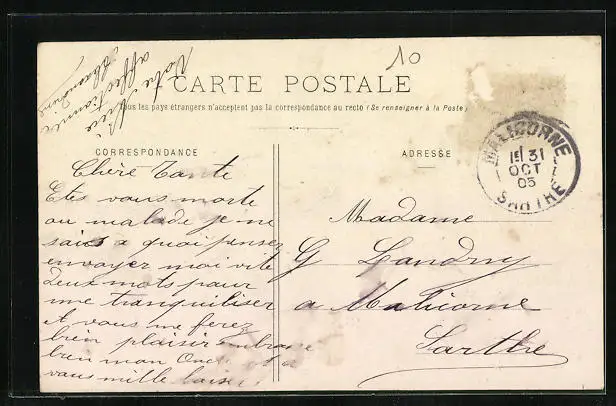 10
CARTE POSTALE
Tous les pays étrangers n'acceptent pas la correspondance au recto (Se renseigner à la Poste)
CORRESPONDANCE
ADRESSE
MALICORNE
1E 31
OCT
05
SARTHE
Chère Tante
Etes vous morte
ou malade je ne
sais a quoi penser
envoyer moi vite
deux mots pour
me tranquiliser
et vous me ferez
bien plaisir embrasse
bien mon Oncle et a
vous mille baisers
Votre nièce
affectionnée
Madame
G Landry
a Malicorne
Sarthe